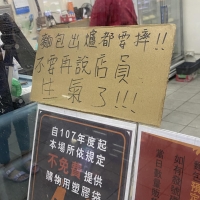 麵包出爐都要摔!!
不要再說店員
生氣了!!!
自107年度起
本場所依規定
不免費提供
購物用塑膠袋